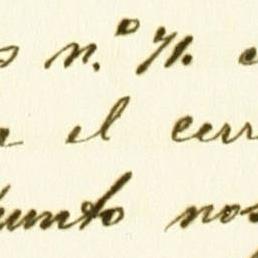 s n.º 71. e
a el cerr
punto nos